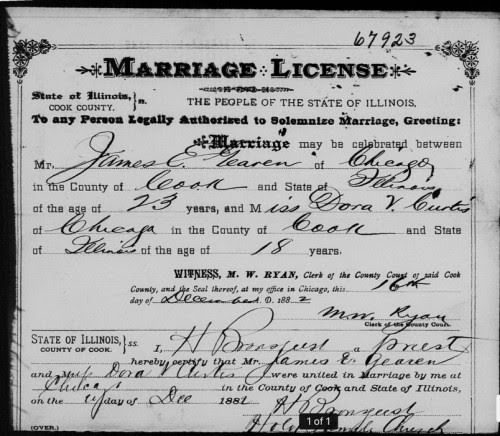 67923
MARRIAGE LICENSE
State of Illinois, COOK COUNTY, } ss.
THE PEOPLE OF THE STATE OF ILLINOIS,
To any Person Legally Authorized to Solemnize Marriage, Greeting:
Marriage may be celebrated between
Mr. James E. Gearen of Chicago
in the County of Cook and State of Illinois
of the age of 23 years, and Miss Dora V. Curtis
of Chicago in the County of Cook and State
of Illinois of the age of 18 years.
WITNESS, M. W. RYAN, Clerk of the County Court of said Cook
County, and the Seal thereof, at my office in Chicago, this 16th
day of December A. D. 1882
M. W. Ryan
Clerk of the County Court.
STATE OF ILLINOIS, COUNTY OF COOK. } ss. I, H a Priest
hereby certify that Mr. James E. Gearen
and Miss Dora V Curtis were united in Marriage by me at
Chicago in the County of Cook and State of Illinois,
on the day of Dec 1882
H
(OVER.) Church
1 of 1